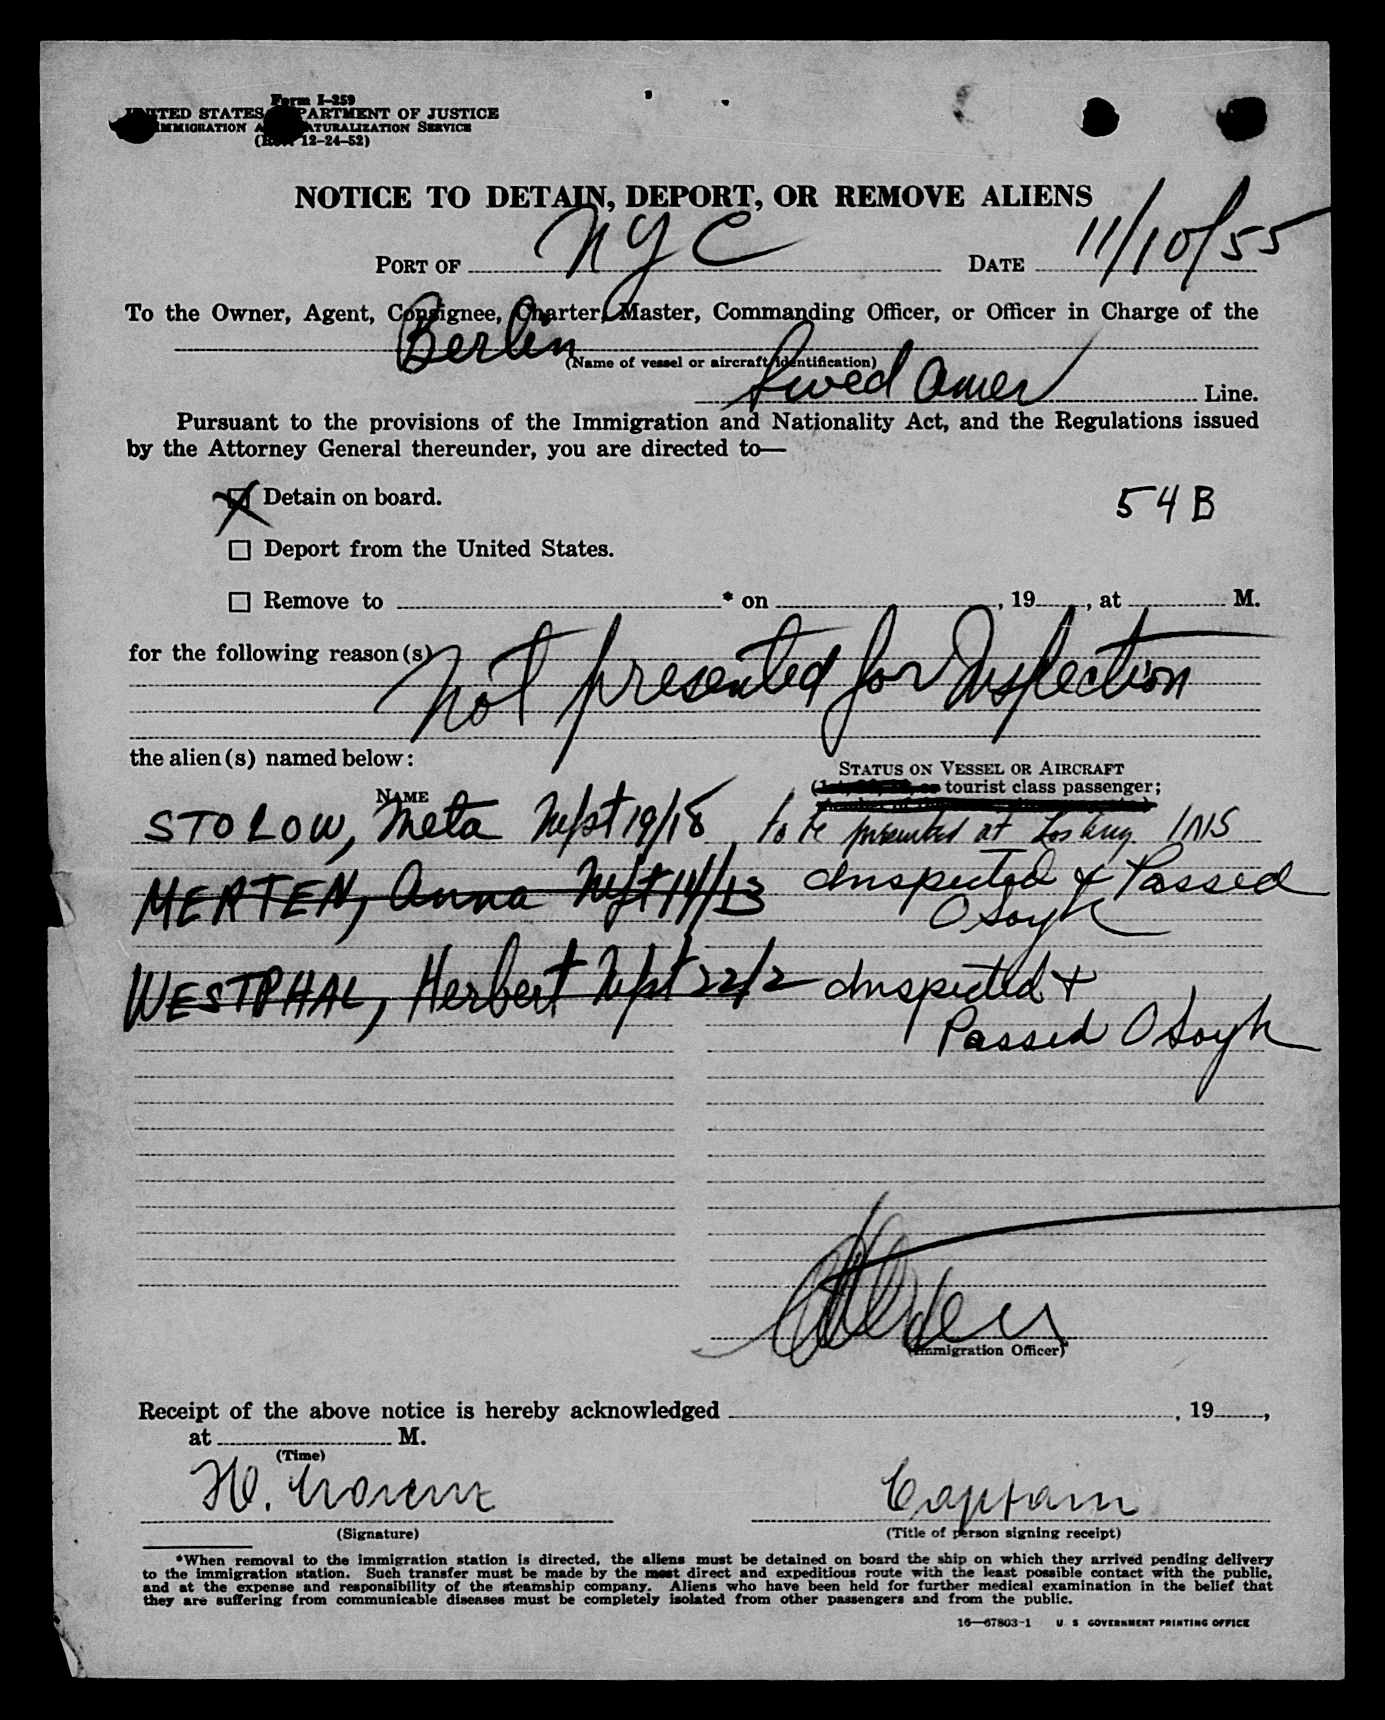 Form I-259
UNITED STATES DEPARTMENT OF JUSTICE
IMMIGRATION AND NATURALIZATION SERVICE
(Rev. 12-24-52)
NOTICE TO DETAIN, DEPORT, OR REMOVE ALIENS
PORT OF NYC DATE 11/10/55
To the Owner, Agent, Consignee, Charter, Master, Commanding Officer, or Officer in Charge of the
Berlin
(Name of vessel or aircraft identification)
Swed Amer Line.
Pursuant to the provisions of the Immigration and Nationality Act, and the Regulations issued
by the Attorney General thereunder, you are directed to—
X Detain on board. 54B
☐ Deport from the United States.
☐ Remove to * on , 19 , at M.
for the following reason(s) Not presented for Inspection
the alien(s) named below:
STATUS ON VESSEL OR AIRCRAFT
tourist class passenger;
NAME
STOLOW, Meta 19/18 to be presented at INS
MERTEN, Anna 14/13 Inspected & Passed
WESTPHAL, Herbert 22/2 Inspected +
Passed
(Immigration Officer)
Receipt of the above notice is hereby acknowledged , 19 ,
at M.
(Time)
H. Captain
(Signature) (Title of person signing receipt)
*When removal to the immigration station is directed, the aliens must be detained on board the ship on which they arrived pending delivery
to the immigration station. Such transfer must be made by the most direct and expeditious route with the least possible contact with the public,
and at the expense and responsibility of the steamship company. Aliens who have been held for further medical examination in the belief that
they are suffering from communicable diseases must be completely isolated from other passengers and from the public.
16—67803-1 U S GOVERNMENT PRINTING OFFICE